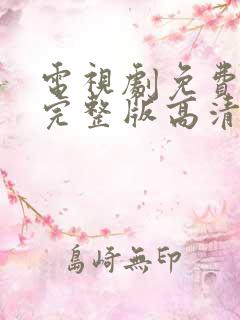 電視劇免費
完整版高清
島崎無印